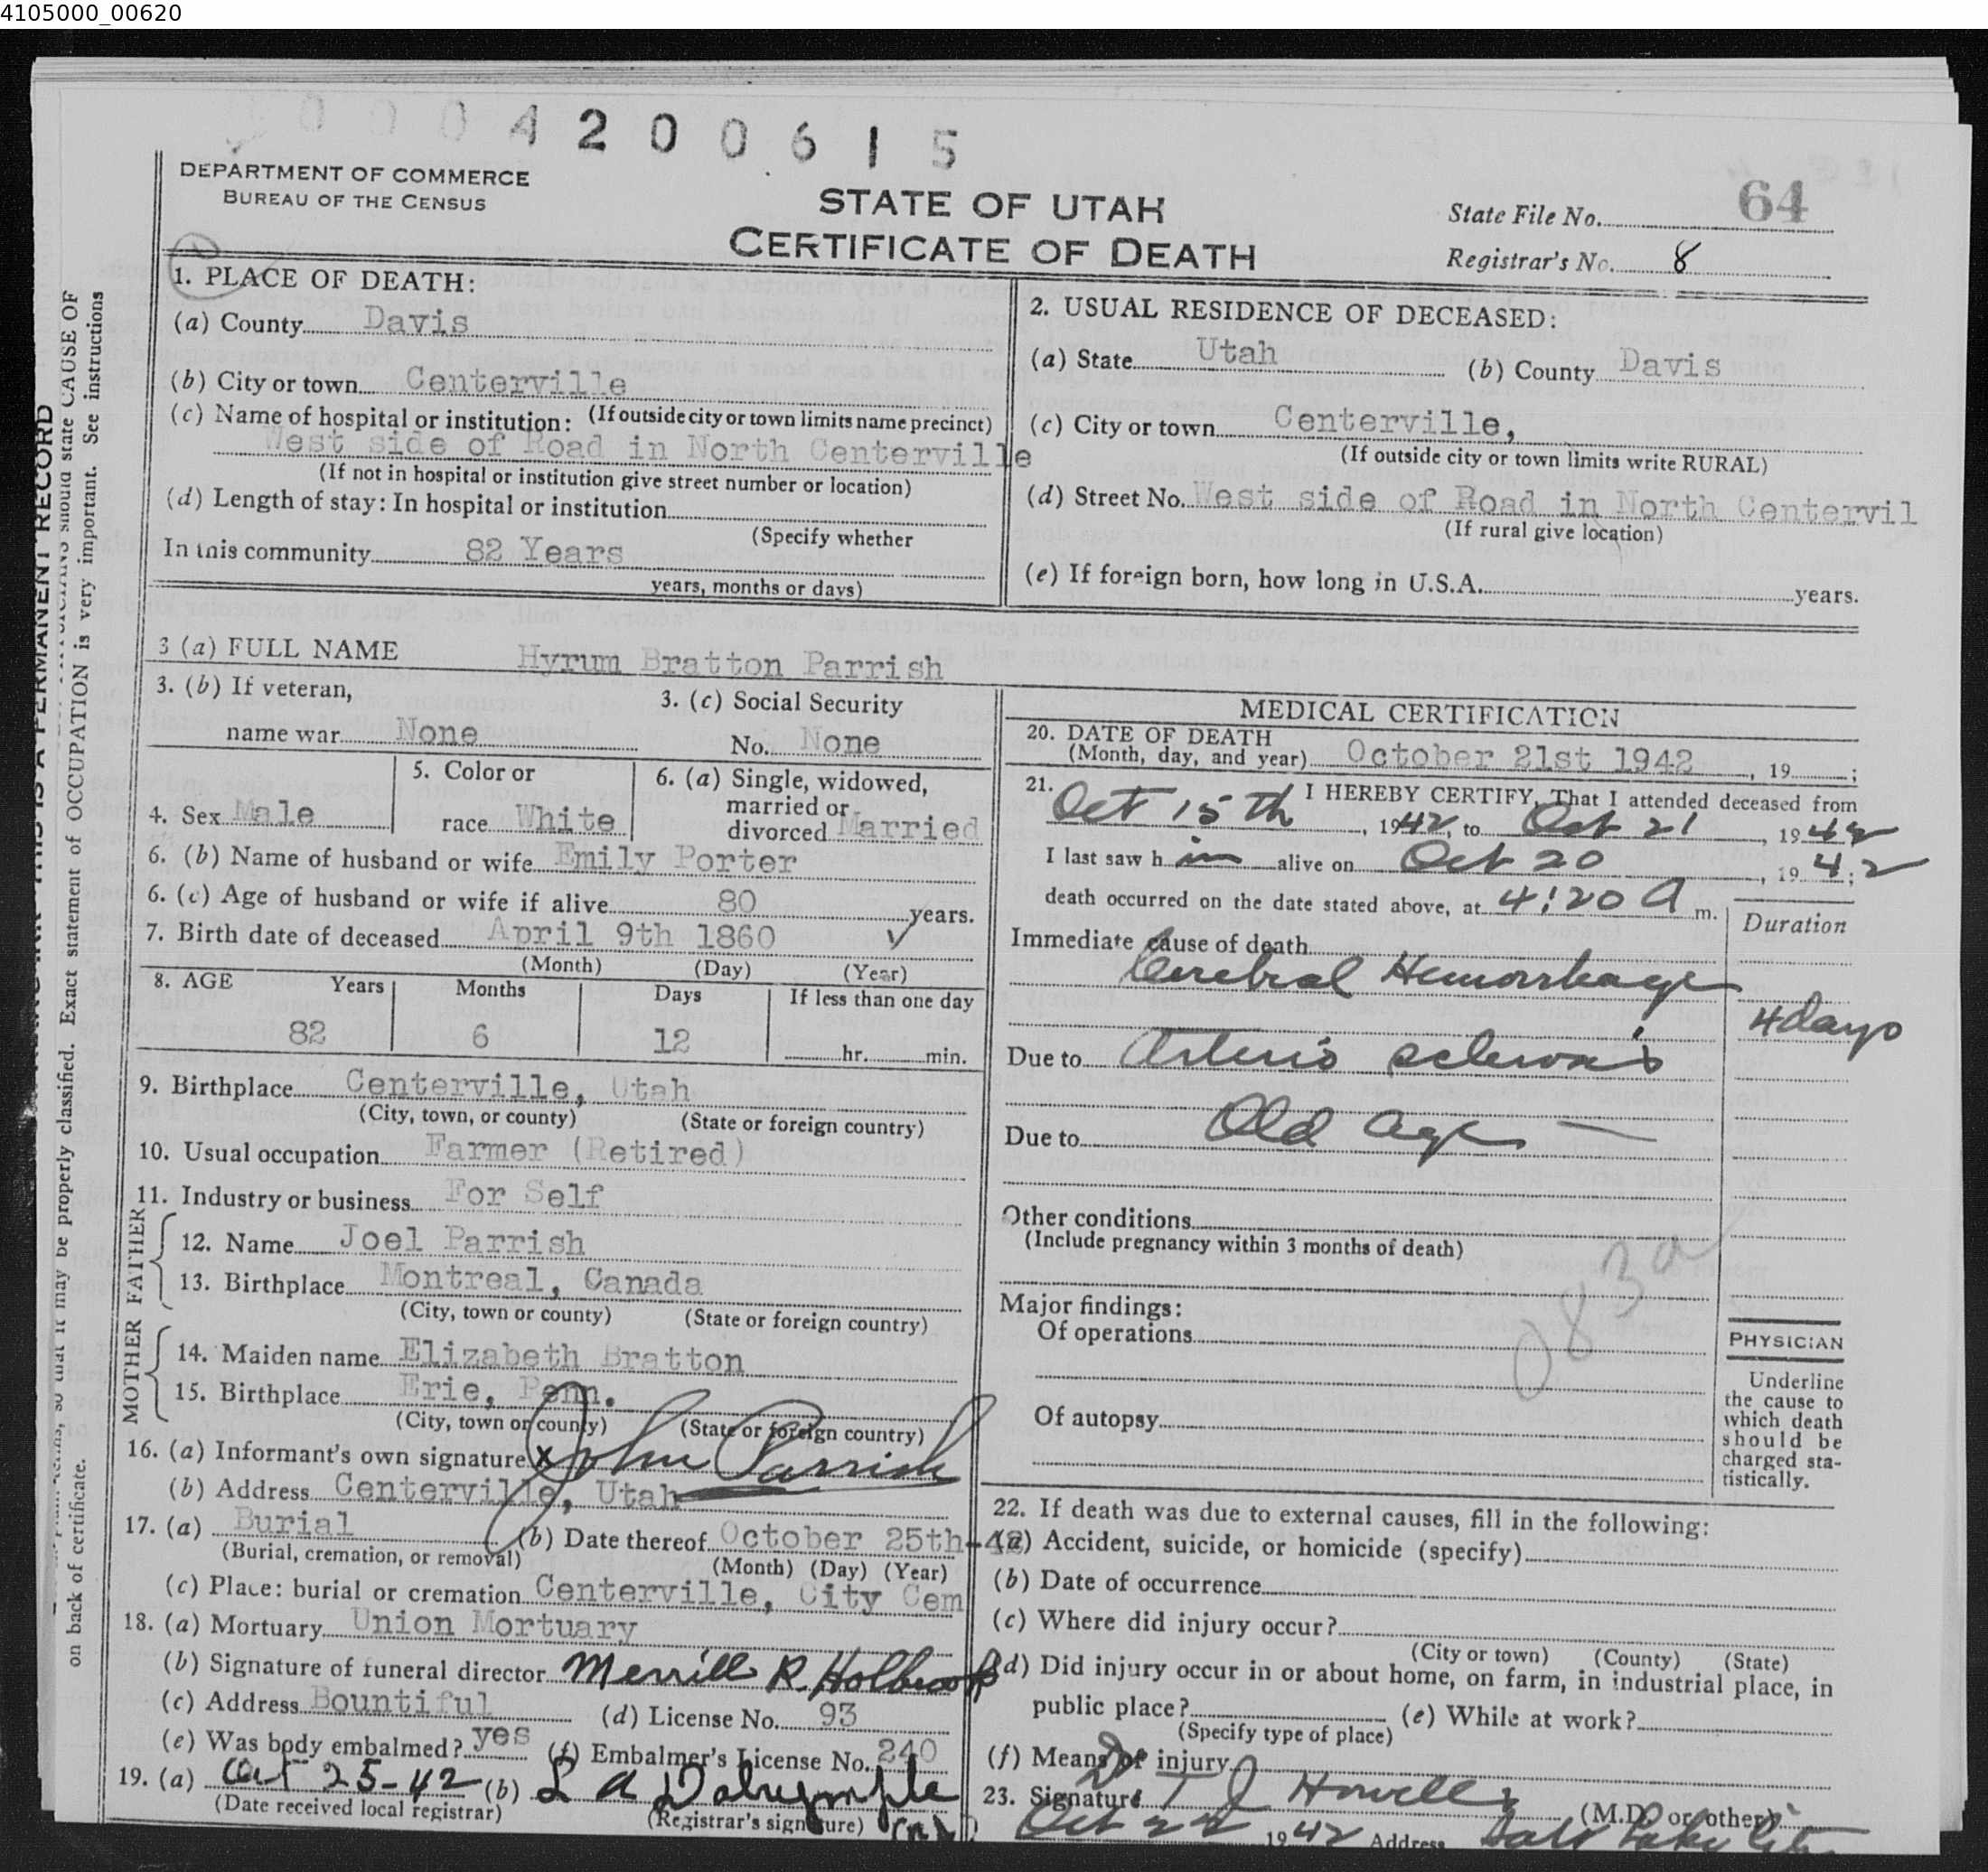 4105000_00620
0004200615
DEPARTMENT OF COMMERCE
BUREAU OF THE CENSUS
STATE OF UTAH
CERTIFICATE OF DEATH
State File No. 64
Registrar's No. 8
1. PLACE OF DEATH:
(a) County Davis
(b) City or town Centerville
(c) Name of hospital or institution: (If outside city or town limits name precinct)
West side of Road in North Centerville
(If not in hospital or institution give street number or location)
(d) Length of stay: In hospital or institution
(Specify whether
In this community 82 Years
years, months or days)
2. USUAL RESIDENCE OF DECEASED:
(a) State Utah (b) County Davis
(c) City or town Centerville,
(If outside city or town limits write RURAL)
(d) Street No. West side of Road in North Centervil
(If rural give location)
(e) If foreign born, how long in U.S.A. years.
3 (a) FULL NAME Hyrum Bratton Parrish
3. (b) If veteran, 3. (c) Social Security
name war None No. None
4. Sex Male 5. Color or race White 6. (a) Single, widowed, married or divorced Married
6. (b) Name of husband or wife Emily Porter
6. (c) Age of husband or wife if alive 80 years.
7. Birth date of deceased April 9th 1860 ✓
(Month) (Day) (Year)
8. AGE Years Months Days If less than one day
82 6 12 hr. min.
9. Birthplace Centerville, Utah
(City, town, or county) (State or foreign country)
10. Usual occupation Farmer (Retired)
11. Industry or business For Self
FATHER
12. Name Joel Parrish
13. Birthplace Montreal, Canada
(City, town or county) (State or foreign country)
MOTHER
14. Maiden name Elizabeth Bratton
15. Birthplace Erie, Penn.
(City, town or county) (State or foreign country)
16. (a) Informant's own signature x John Parrish
(b) Address Centerville, Utah
17. (a) Burial (b) Date thereof October 25th-42
(Burial, cremation, or removal) (Month) (Day) (Year)
(c) Place: burial or cremation Centerville, City Cem
18. (a) Mortuary Union Mortuary
(b) Signature of funeral director Merrill R. Holbrook
(c) Address Bountiful (d) License No. 93
(e) Was body embalmed? yes (f) Embalmer's License No. 240
19. (a) Oct 25-42 (b) L A Dalrymple
(Date received local registrar) (Registrar's signature)
MEDICAL CERTIFICATION
20. DATE OF DEATH
(Month, day, and year) October 21st 1942, 19 ;
21. I HEREBY CERTIFY, That I attended deceased from
Oct 15th, 1942, to Oct 21, 1942
I last saw h im alive on Oct 20, 1942;
death occurred on the date stated above, at 4:20 A m.
Duration
Immediate cause of death
Cerebral Hemorrhage
4 days
Due to Arterio sclerosis
Due to Old Age
Other conditions
(Include pregnancy within 3 months of death)
083a
Major findings:
Of operations
Of autopsy
PHYSICIAN
Underline
the cause to
which death
should be
charged sta-
tistically.
22. If death was due to external causes, fill in the following:
(a) Accident, suicide, or homicide (specify)
(b) Date of occurrence
(c) Where did injury occur?
(City or town) (County) (State)
(d) Did injury occur in or about home, on farm, in industrial place, in
public place? (e) While at work?
(Specify type of place)
(f) Means of injury
23. Signature Dr T J Howells (M.D. or other)
Oct 22 1942 Address Salt Lake City
THIS IS A PERMANENT RECORD
should state CAUSE OF
so that it may be properly classified. Exact statement of OCCUPATION is very important. See instructions
on back of certificate.